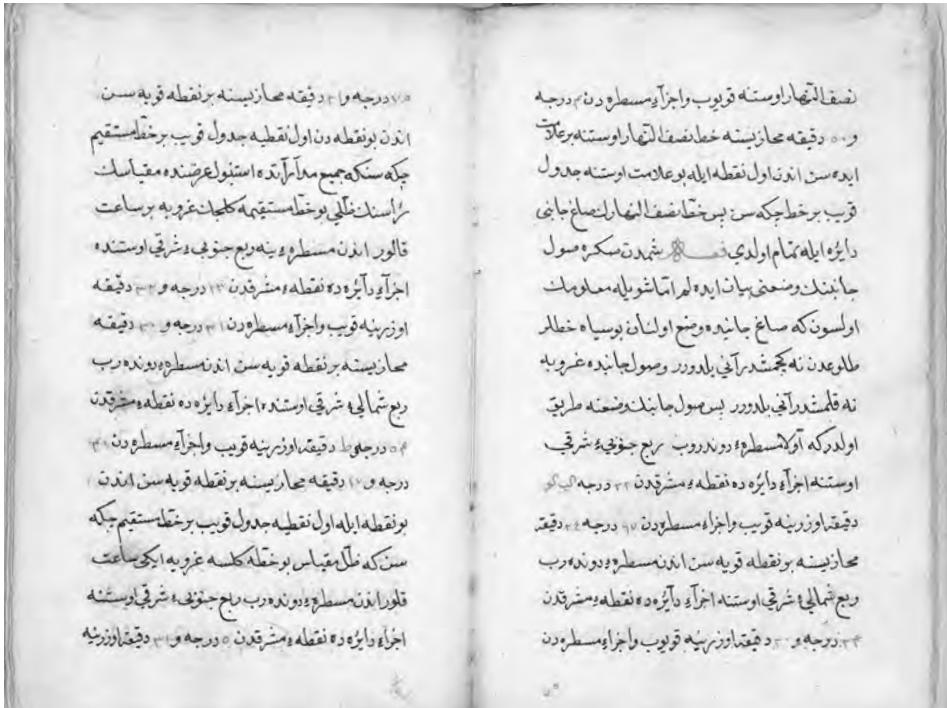 نصف النهار اوستنه قويوب واجزاء مسطره دن درجه
و دقيقه محازيسنه خط نصف النهار اوستنه بر علامت
ايده سن اندن اول نقطه ايله بو علامت اوستنه جدول
قويب بر خط چكه سن پس خط نصف النهارك صاغ جانبى
دايره ايله تمام اولدي شمدن سكره صول
جانبنك وضعنى بيان ايده لم اتما شويله معلومك
اولسون كه صاغ جانبده وضع اولنان بو سياه خطلر
طلوعدن نه كچمشدر آني بلدورر وصول جانبده غروبه
نه قلمشدر آني بلدورر پس صول جانبك وضعنه طريق
اولدر كه اولا مسطره ء دوندروب ربع جنوبىء شرقي
اوستنه اجزاء دايره ده نقطهء مشرقدن ٢٢ درجه
دقيقه اوزرينه قويب واجزاء مسطره دن درجه ٢٤ دقيقه
محازيسنه بو نقطه قويه سن اندن مسطرهء دوندرب
ربع شمالىء شرقي اوستنه اجزاء دآيره ده نقطهء مشرقدن
درجه و دقيقه اوزرينه قويوب واجزاء مسطره دن
درجه و دقيقه محازيسنه بر نقطه قويه سن
اندن بو نقطه دن اول نقطيه جدول قويب بر خط مستقيم
چكه سنكه جميع مدارآتده استنبول عرضنده مقياسك
رأسنك ظلي بو خط مستقيمه كلجك غروبه بر ساعت
قالور اندن مسطرهء ينه ربع جنوبىء شرقي اوستنده
اجزآء دآيره ده نقطهء مشرقدن ١٣ درجه و ٣٢ دقيقه
اوزرينه قويب واجزآء مسطره دن ٣١ درجه و دقيقه
محازيسنه بر نقطه قويه سن اندن مسطرهء دوندرب
ربع شمالىء شرقي اوستنده اجزآء دايره ده نقطهء مشرقدن
درجه دقيقه اوزرينه قويب واجزاء مسطره دن
درجه و دقيقه محازيسنه بر نقطه قويه سن اندن
بو نقطه ايله اول نقطيه جدول قويب بر خط مستقيم چكه
سن كه ظل مقياس بو خطه كلسه غروبه ايكى ساعت
قلور اندن مسطرهء دوندرب ربع جنوبىء شرقي اوستنه
اجزاء دايره ده نقطهء مشرقدن ٥ درجه و دقيقه اوزرينه